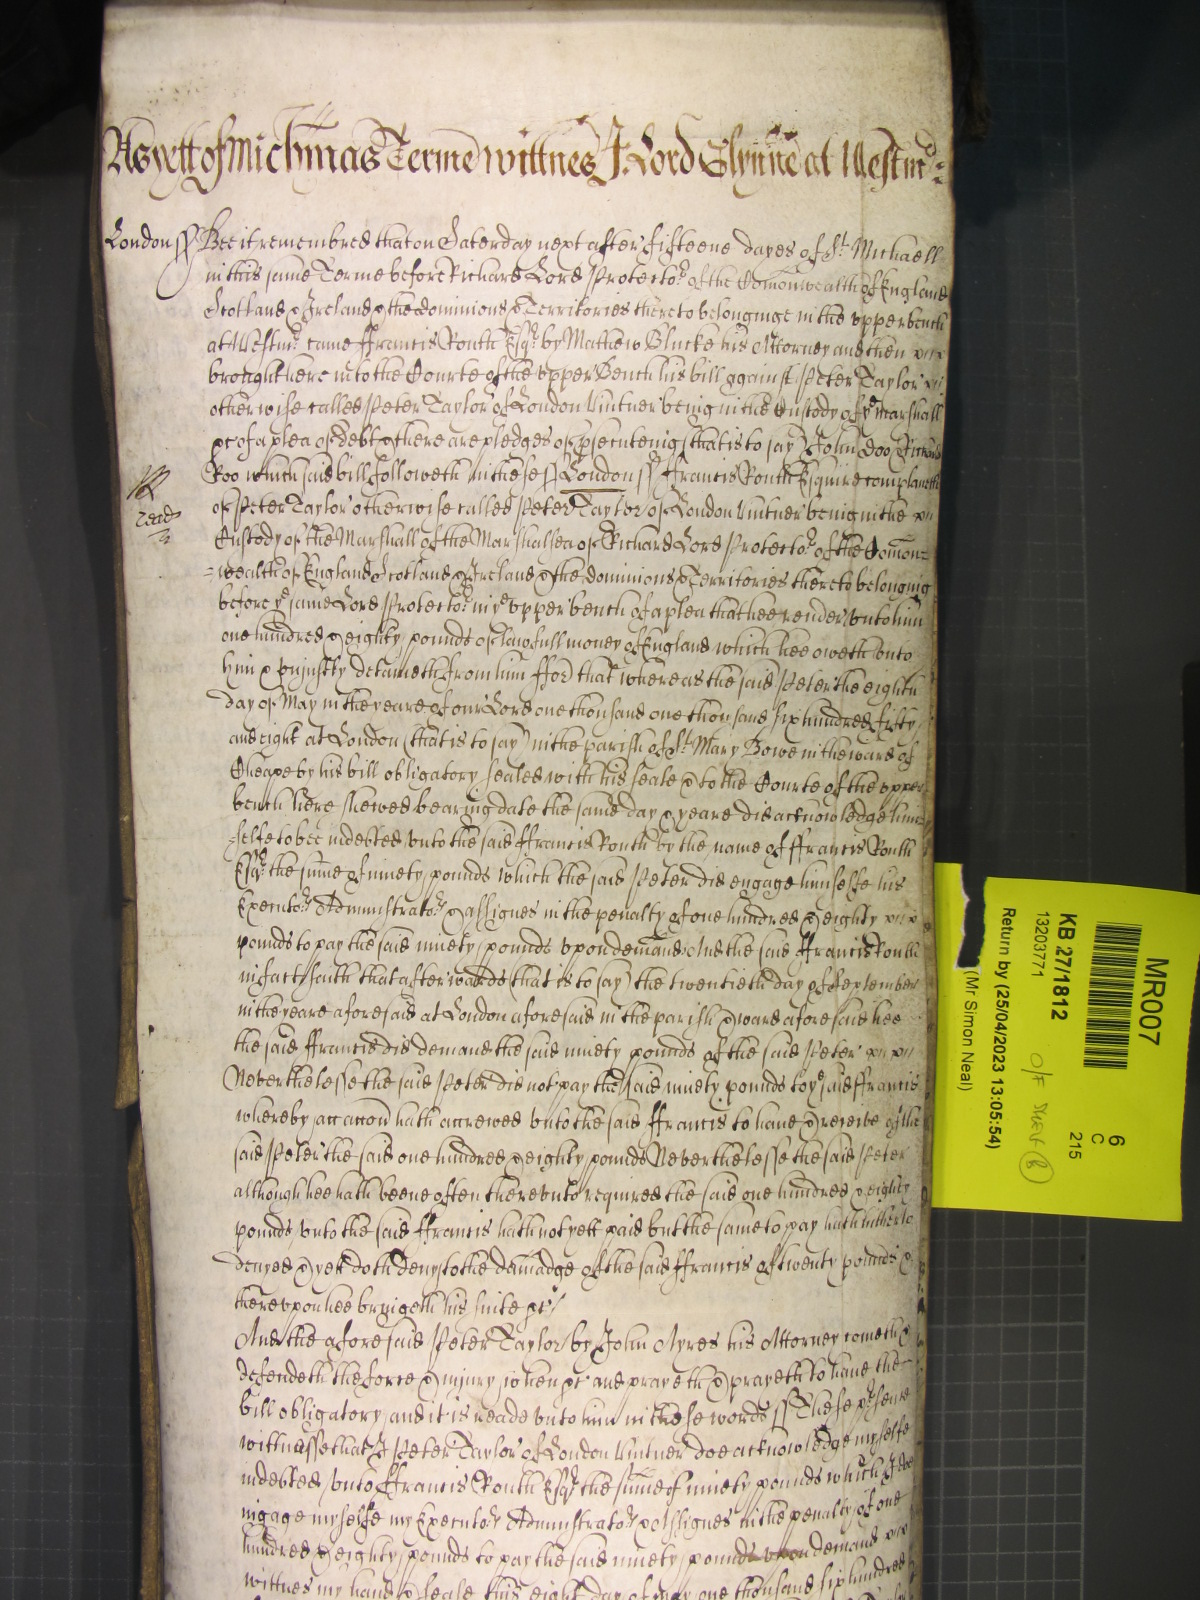 As yett of Michmas Terme wittnes J. Lord Glynne at Westmr
London ss Bee it remembred that on Saterday next after fifteene dayes of St. Michaell
in this same Terme before Richard Lord Protector of the Comonwealth of England
Scotland & Ireland & the dominions & Territories thereto belonginge in the upper bench
at Westmr came ffrancis Routh Esqr by Mathew Blucke his Attorney and then
brought here into the Courte of the upper Bench his bill against Peter Taylor
otherwise called Peter Taylor of London Vintner being in the Custody of ye Marshall
&c of a plea of debt & there are pledges of psecuteing (that is to say) John Doo & Richard
Roo which said bill followeth in these ss London ss ffrancis Routh Esquire complaineth
of Peter Taylor otherwise called Peter Taylor of London Vintner being in the
Read
Custody of the Marshall of the Marshalsea of Richard Lord Protector of the Comon=
=wealth of England Scotland & Ireland & the dominions & Territories thereto belonging
before ye same Lord Protector in ye upper bench of a plea that hee render unto him
one hundred & eighty pounds of lawfull money of England which hee oweth unto
him & unjustly detaineth from him ffor that whereas the said Peter the eighth
day of May in the yeare of our Lord one thousand one thousand six hundred fifty
and eight at London (that is to say) in the parish of St. Mary Bowe in the ward of
Cheape by his bill obligatory sealed with his seale & to the Courte of the upper
bench here shewed bearing date the same day & yeare did acknowledge him=
=selfe to bee indebted unto the said ffrancis Routh by the name of ffrancis Routh
Esqr the sume of ninety pounds which the said Peter did engage himselfe his
Executors Administrators & assignes in the penalty of one hundred & eighty
pounds to pay the said ninety pounds upon demand And the said ffrancis Routh
in fact saith that afterwards (that is to say) the twentieth day of September
in the yeare aforesaid at London aforesaid in the parish & ward aforesaid hee
the said ffrancis did demand the said ninety pounds of the said Peter
Neverthelesse the said Peter did not pay the said ninety pounds to ye said ffrancis
whereby an accon hath accrewed unto the said ffrancis to have & receive of the
said Peter the said one hundred & eighty pounds Neverthelesse the said Peter
although hee hath beene often thereunto required the said one hundred & eighty
pounds unto the said ffrancis hath not yett paid but the same to pay hath hitherto
denyed & yett doth deny to the damadge of the said ffrancis of twenty pounds &
thereupon hee bringeth his suite &c
And the aforesaid Peter Taylor by John Ayres his Attorney cometh &
defendeth the force & injury when &c and prayeth & prayeth to have the
bill obligatory and it is reade unto him in these words ss These psents
wittnesse that I Peter Taylor of London Vintner doe acknowledge myselfe
indebted unto ffrancis Routh Esqr the sume of ninety pounds which I doe
ingage myselfe my Executors Administrators & Assignes in the penalty of one
hundred & eighty pounds to pay the said ninety pounds upon demand
wittnes my hand & seale this eight day of may one thousand six hundred
MR007
6
C
215
KB 27/1812
13203771
O/F Shelf B
Return by (25/04/2023 13:05:54)
(Mr Simon Neal)